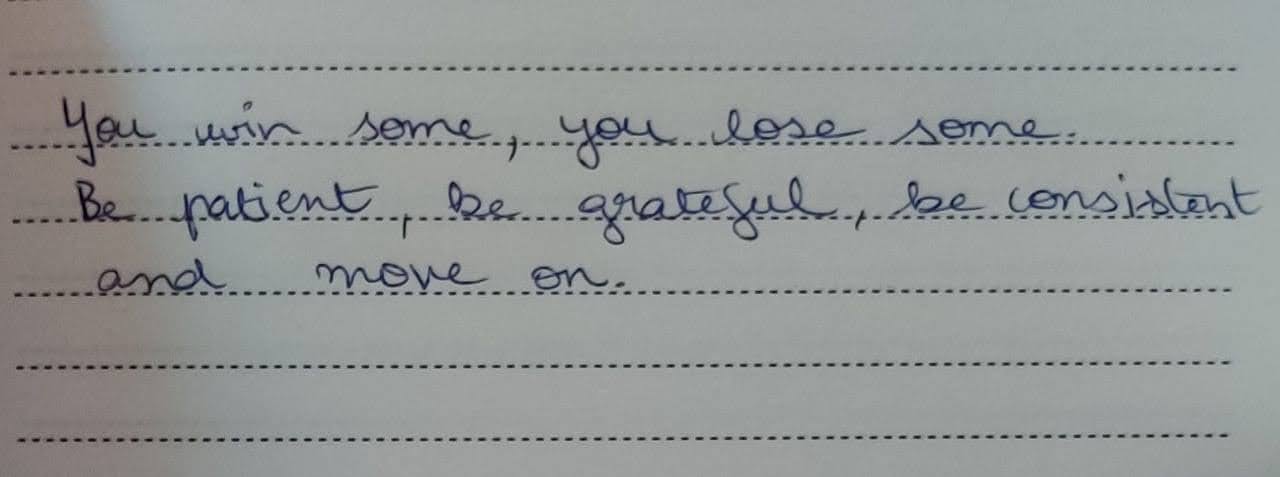 You win some, you lose some.
Be patient, be grateful, be consistent
and move on.